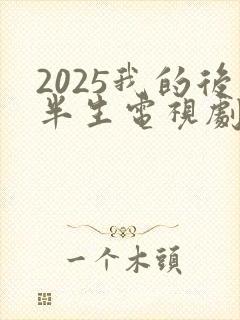 2025我的後
半生電視劇
一个木頭